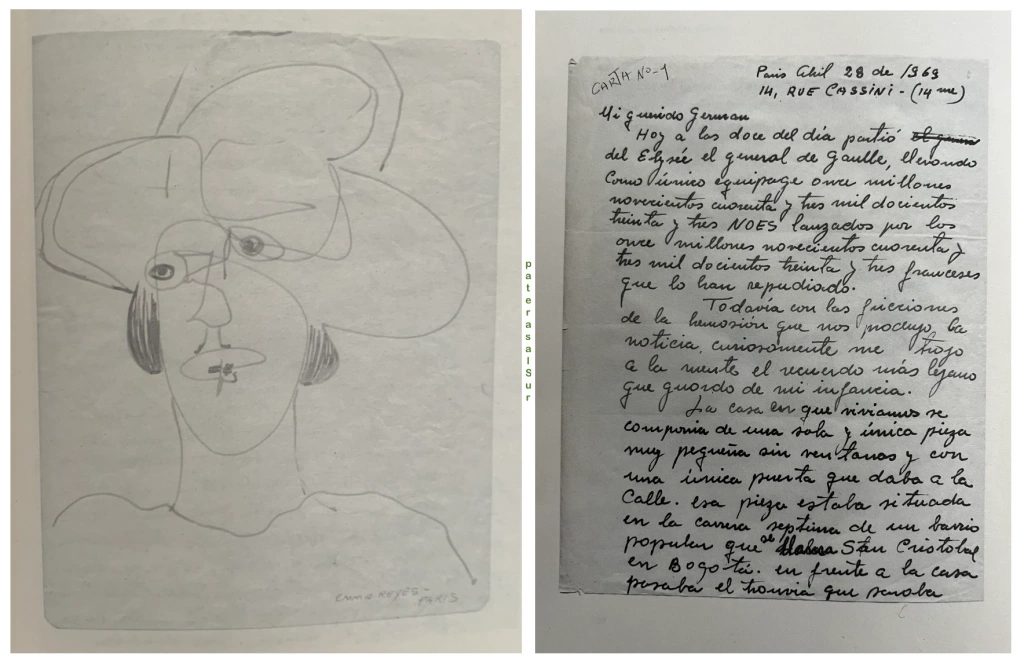 EMMA REYES -
PARIS
paterasalSur
CARTA No-1
Paris Abril 28 de 1969
14, RUE CASSINI - (14 me)
Mi querido German
Hoy a las doce del día partió
del Elysée el general de Gaulle, llevando
como único equipage once millones
novecientos cuarenta y tres mil docientos
treinta y tres NOES lanzados por los
once millones novecientos cuarenta y
tres mil docientos treinta y tres franceses
que lo han repudiado.
Todavía con las
de la que nos produjo, la
noticia, curiosamente me trajo
a la mente el recuerdo más lejano
que guardo de mi infancia.
La casa en que viviamos se
componia de una sola y única pieza
muy pequeña sin ventanas y con
una única puerta que daba a la
calle. esa pieza estaba situada
en la carrera septima de un barrio
popular que se San Cristobal
en Bogotá. en frente a la casa
pasaba el tranvia que